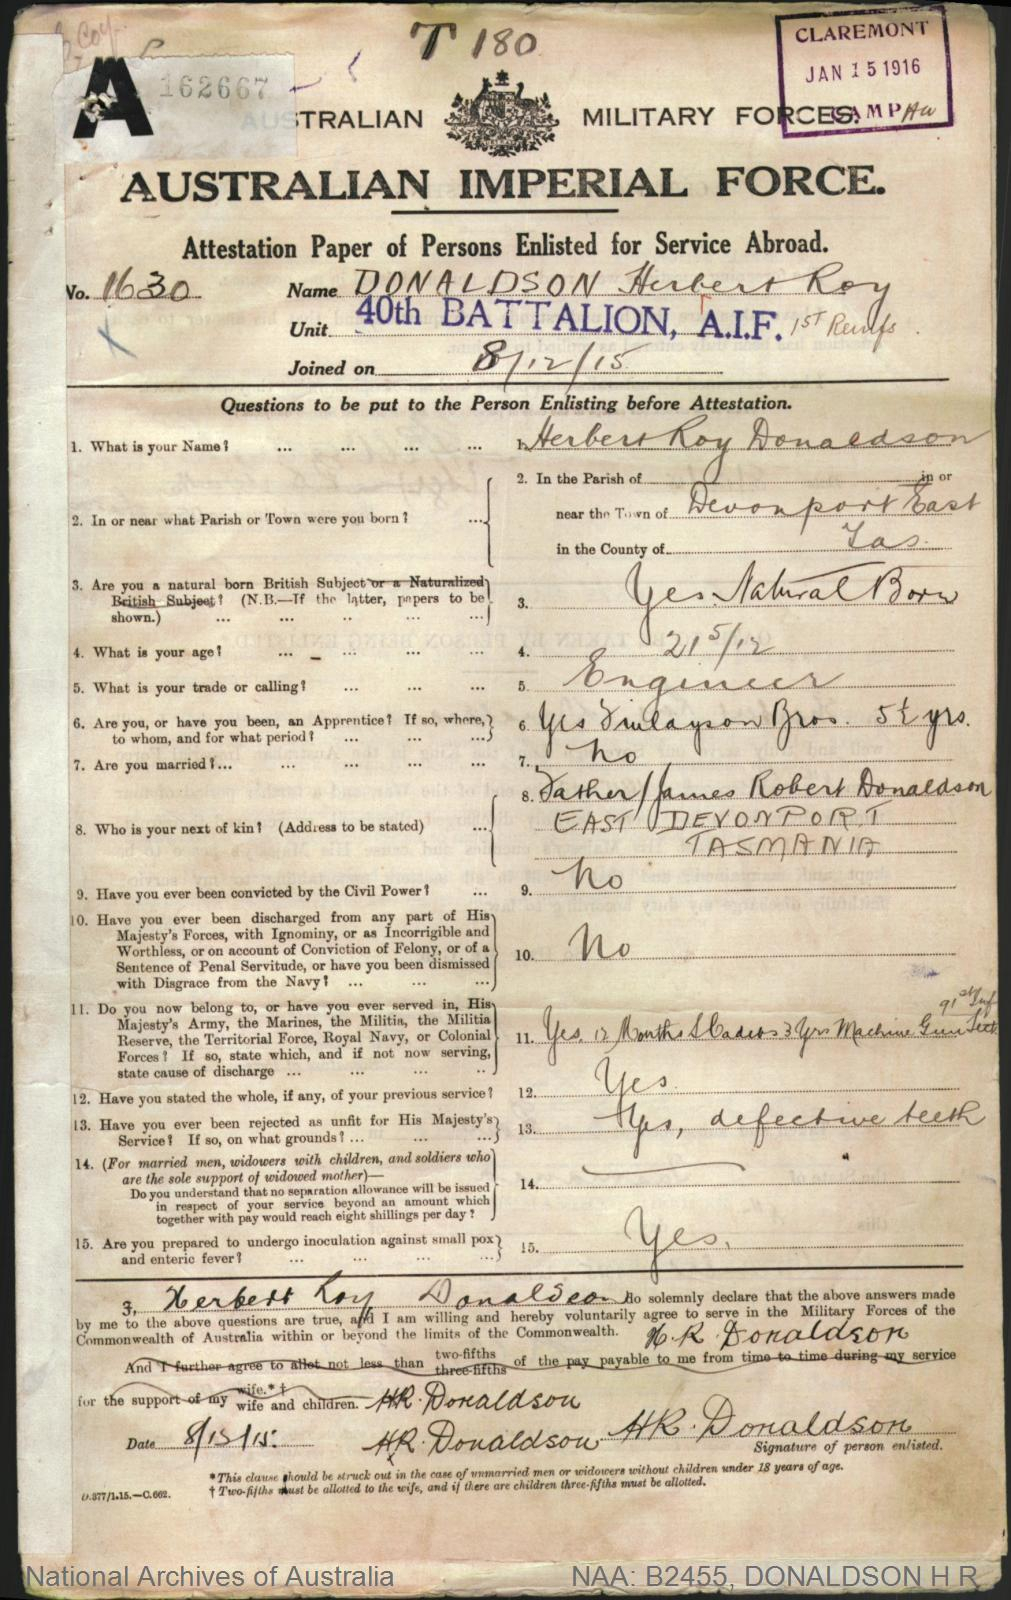 Coy.
T 180
CLAREMONT
JAN 15 1916
CAMP
A
162667
AUSTRALIAN MILITARY FORCES.
AUSTRALIAN IMPERIAL FORCE.
Attestation Paper of Persons Enlisted for Service Abroad.
No. 1630 Name DONALDSON Herbert Roy
Unit 40th BATTALION, A.I.F. 1ST Reinfs
Joined on 8/12/15
Questions to be put to the Person Enlisting before Attestation.
1. What is your Name? ... ... ... ... 1. Herbert Roy Donaldson
2. In or near what Parish or Town were you born? ... 2. In the Parish of in or
near the Town of Devonport East
in the County of Tas.
3. Are you a natural born British Subject or a Naturalized
British Subject? (N.B.—If the latter, papers to be
shown.) ... ... .. ... ... 3. Yes. Natural Born
4. What is your age? ... ... ... ... 4. 21 5/12
5. What is your trade or calling? ... ... ... 5. Engineer
6. Are you, or have you been, an Apprentice? If so, where,
to whom, and for what period? ... ... ... 6. Yes Finlayson Bros. 5½ yrs.
7. Are you married?... ... ... ... ... 7. No
8. Who is your next of kin? (Address to be stated) ... 8. Father/James Robert Donaldson
EAST DEVONPORT
TASMANIA
9. Have you ever been convicted by the Civil Power? ... 9. No
10. Have you ever been discharged from any part of His
Majesty's Forces, with Ignominy, or as Incorrigible and
Worthless, or on account of Conviction of Felony, or of a
Sentence of Penal Servitude, or have you been dismissed
with Disgrace from the Navy? ... ... ... 10. No
11. Do you now belong to, or have you ever served in, His
Majesty's Army, the Marines, the Militia, the Militia
Reserve, the Territorial Force, Royal Navy, or Colonial
Forces? If so, state which, and if not now serving,
state cause of discharge ... ... ... .. 11. Yes. 12 Months S Cadets 3 Yrs Machine Gun Sect 91st Inf
12. Have you stated the whole, if any, of your previous service? 12. Yes.
13. Have you ever been rejected as unfit for His Majesty's
Service? If so, on what grounds? ... ... ... 13. Yes, defective teeth
14. (For married men, widowers with children, and soldiers who
are the sole support of widowed mother)—
Do you understand that no separation allowance will be issued
in respect of your service beyond an amount which
together with pay would reach eight shillings per day? 14.
15. Are you prepared to undergo inoculation against small pox
and enteric fever? ... ... ... ... 15. Yes.
I, Herbert Roy Donaldson do solemnly declare that the above answers made
by me to the above questions are true, and I am willing and hereby voluntarily agree to serve in the Military Forces of the
Commonwealth of Australia within or beyond the limits of the Commonwealth. H.R Donaldson
And I further agree to allot not less than two-fifths three-fifths of the pay payable to me from time to time during my service
for the support of my wife.*† wife and children. HR. Donaldson
Date 8/12/15. HR. Donaldson HR. Donaldson
Signature of person enlisted.
*This clause should be struck out in the case of unmarried men or widowers without children under 18 years of age.
† Two-fifths must be allotted to the wife, and if there are children three-fifths must be allotted.
D.377/1.15.—C.662.
National Archives of Australia NAA: B2455, DONALDSON H R